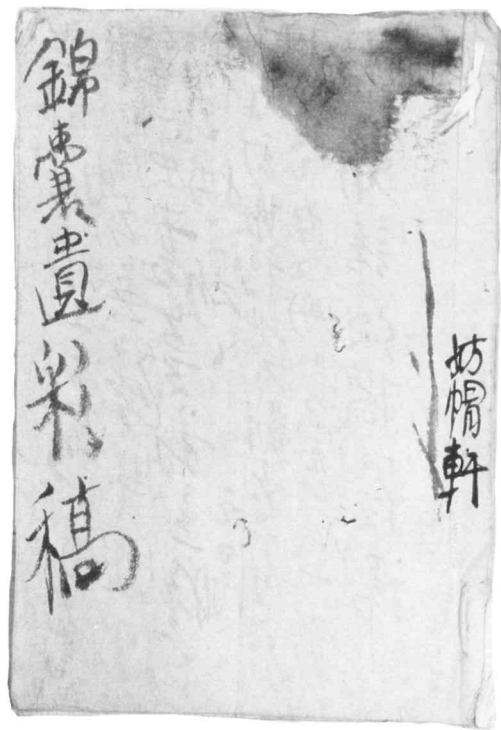 妨帽軒
錦囊遺彩稿